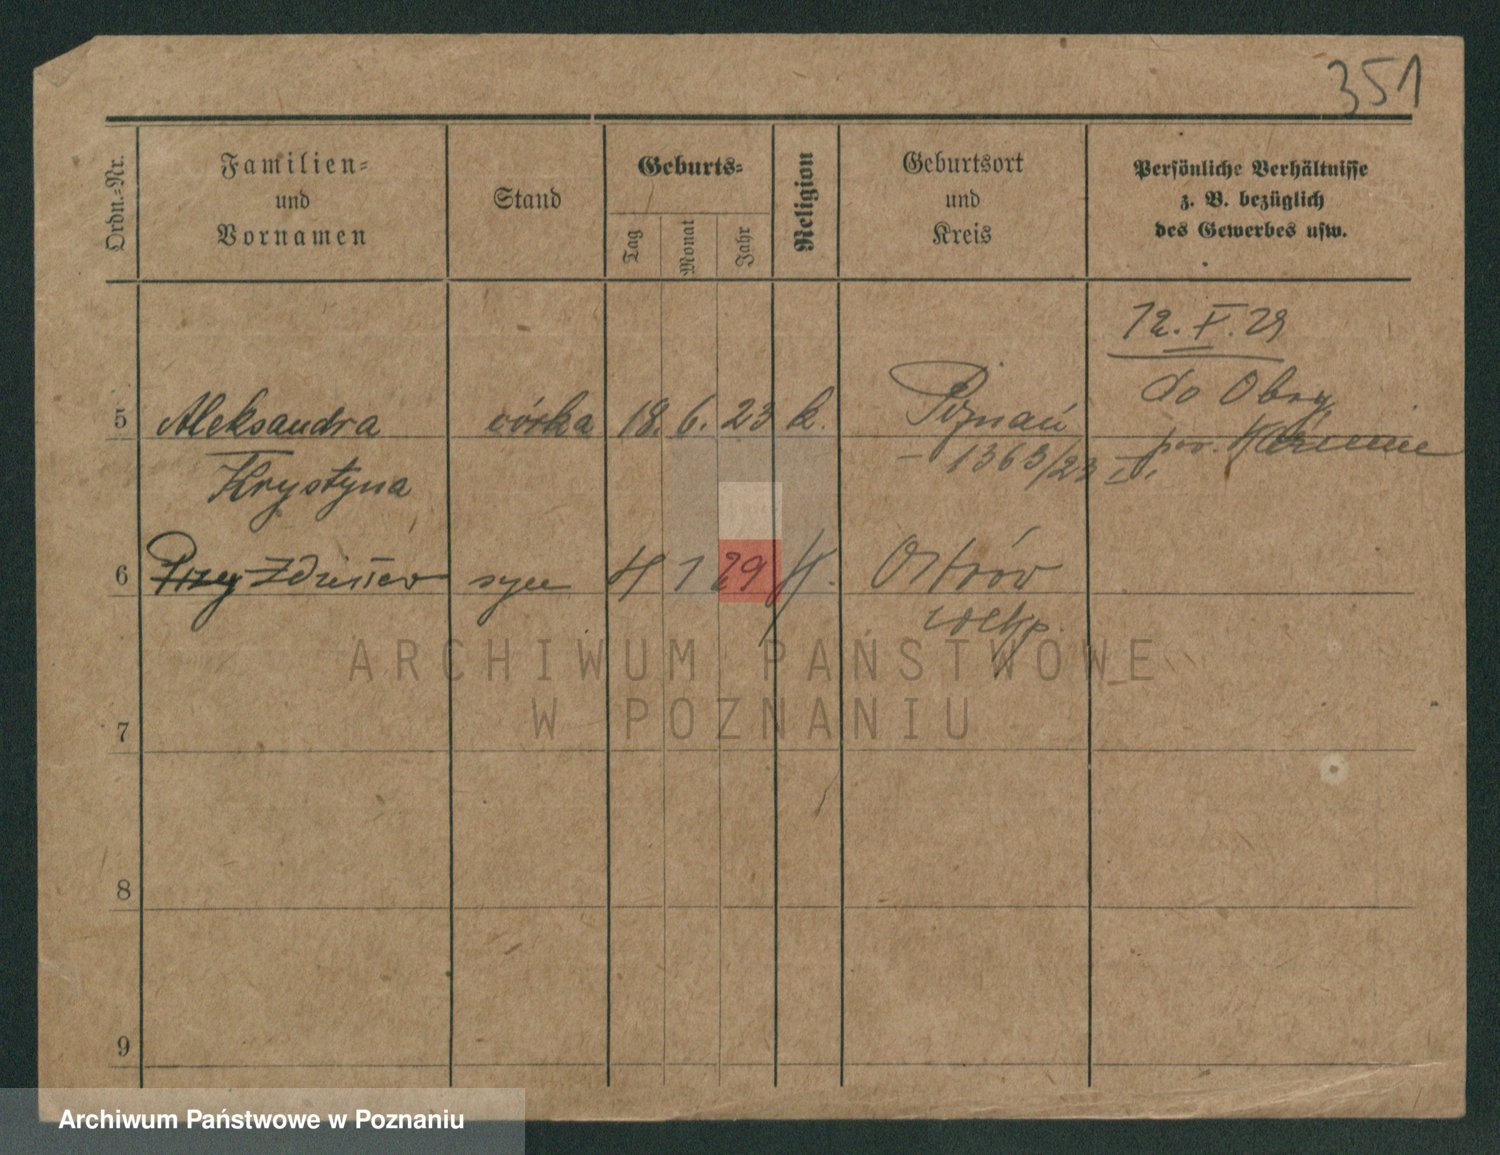 351
Ordn.-Nr.
Familien-
und
Vornamen
Stand
Geburts-
Tag
Monat
Jahr
Religion
Geburtsort
und
Kreis
Persönliche Verhältnisse
z. B. bezüglich
des Gewerbes usw.
12. X. 29
do Obry
pow.
5 Aleksandra córka 18. 6. 23 k. Poznań
Krystyna
- 1363/23 II.
6 Przy Zdzisław syn 4 1 29 k. Ostrów
wlkp.
ARCHIWUM PAŃSTWOWE
W POZNANIU
7
8
9
Archiwum Państwowe w Poznaniu